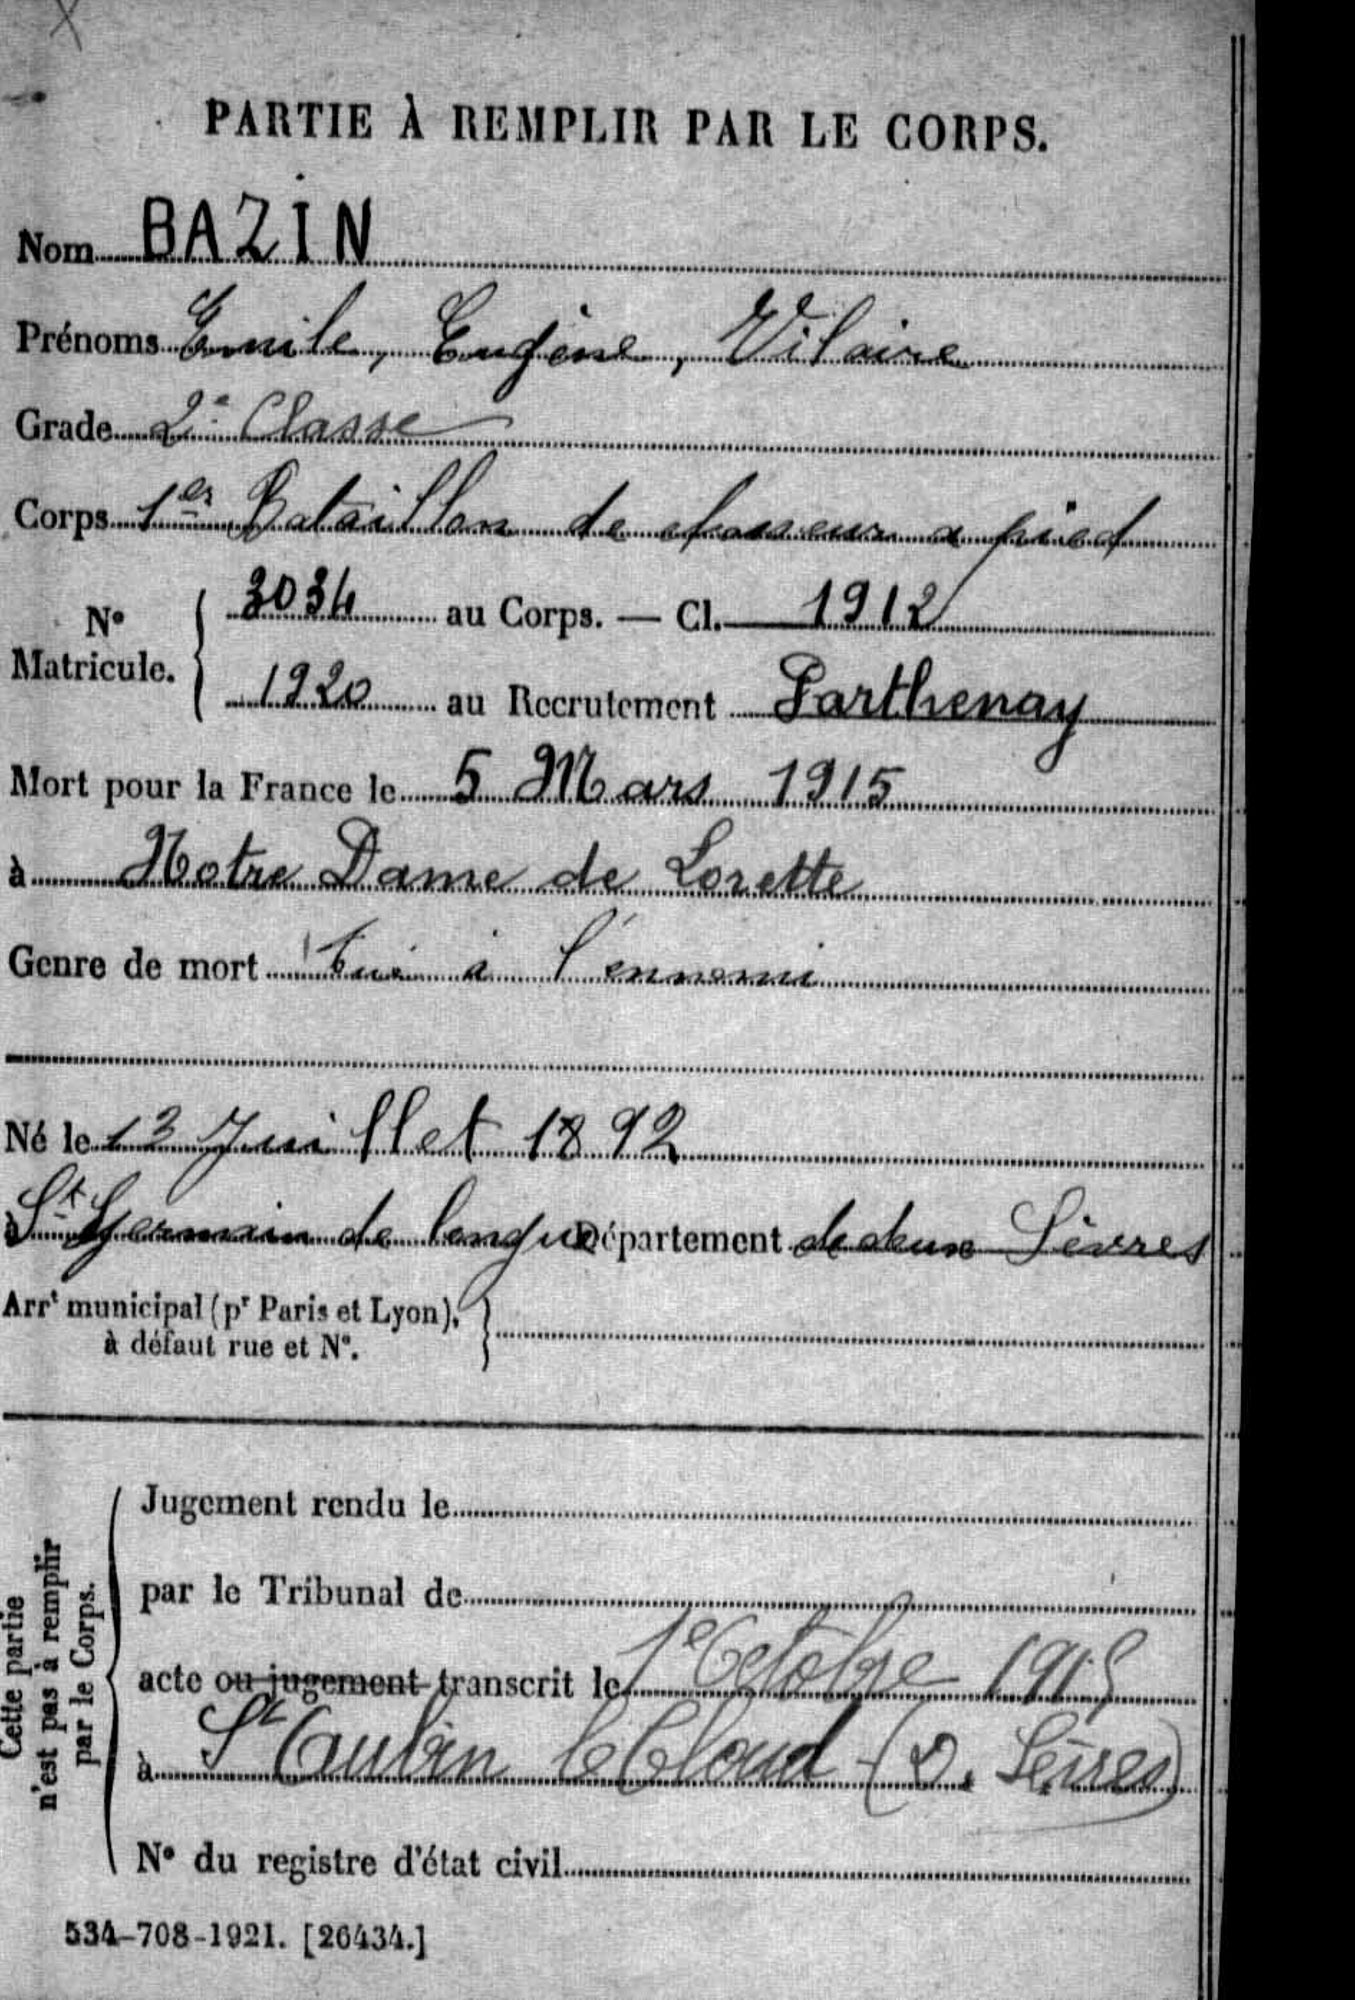 PARTIE À REMPLIR PAR LE CORPS.
Nom BAZIN
Prénoms Emile, Eugène, Vilaire
Grade 2e Classe
Corps 1er Bataillon de chasseur a pied
N° Matricule. 3034 au Corps. — Cl. 1912
1920 au Recrutement Parthenay
Mort pour la France le 5 Mars 1915
à Notre Dame de Lorette
Genre de mort tué à l'ennemi
Né le 13 Juillet 1892
à St Germain de longue Département de deux Sèvres
Arrt municipal (pr Paris et Lyon),
à défaut rue et N°.
Cette partie
n'est pas à remplir
par le Corps.
Jugement rendu le
par le Tribunal de
acte ou jugement transcrit le 1e Octobre 1915
à St Aubin le Cloud (D. Sèvres)
N° du registre d'état civil
534-708-1921. [26434.]